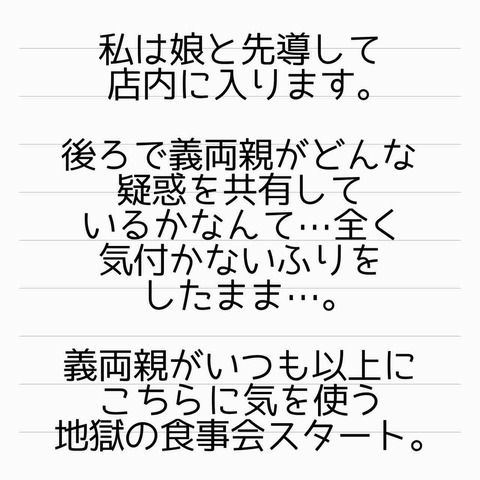 私は娘と先導して
店内に入ります。
後ろで義両親がどんな
疑惑を共有して
いるかなんて…全く
気付かないふりを
したまま…。
義両親がいつも以上に
こちらに気を使う
地獄の食事会スタート。